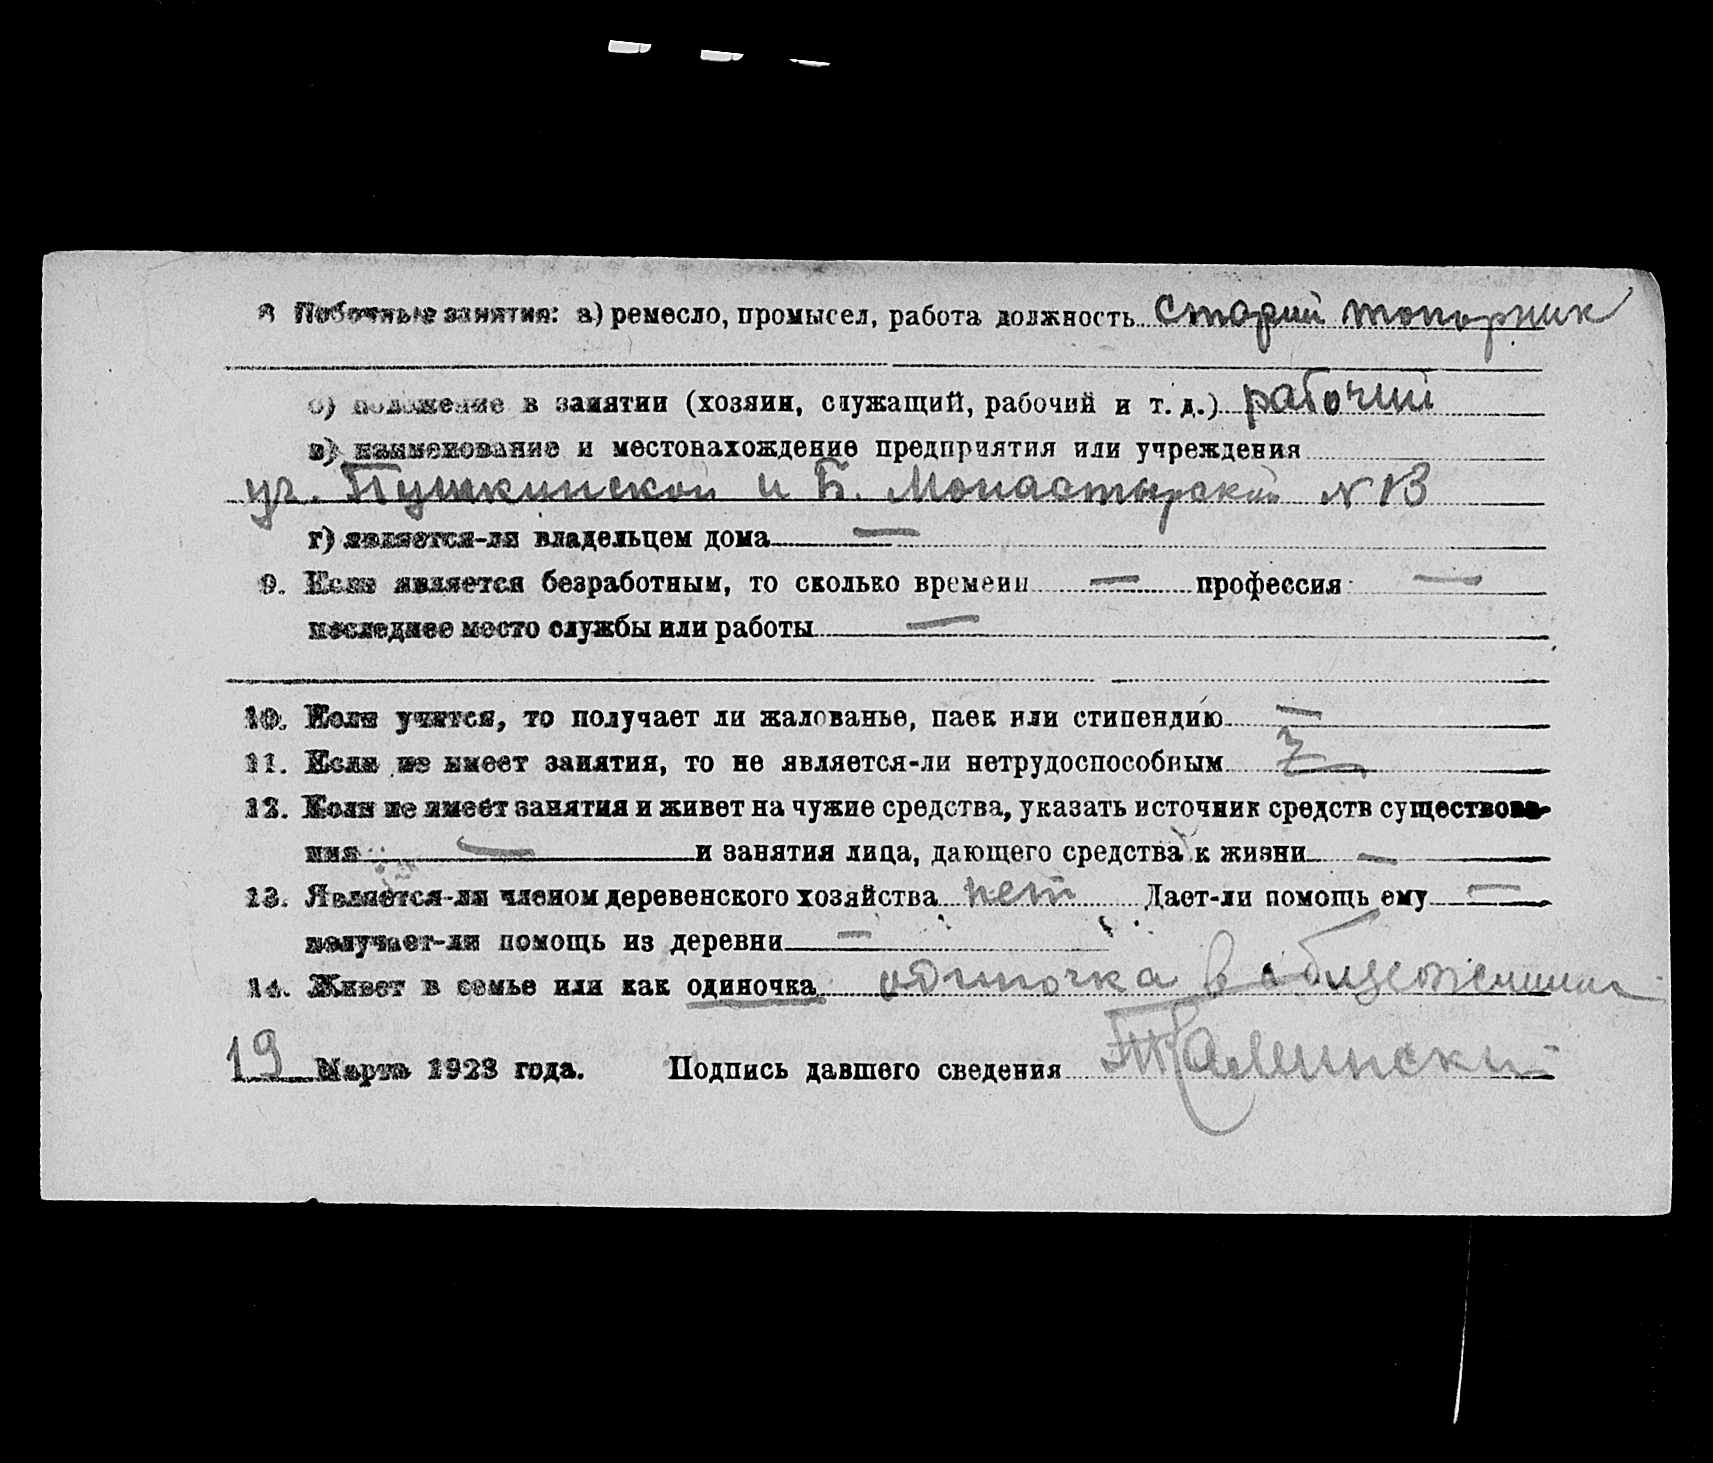 8 Побочные занятия: а) ремесло, промысел, работа должность старий топорник
б) положение в занятии (хозяин, служащий, рабочий и т. д.) рабочий
в) наименование и местонахождение предприятия или учреждения
уг. Пушкинской и Б. Монастырской N 13
г) является-ли владельцем дома —
9. Если является безработным, то сколько времени — профессия —
последнее место службы или работы —
10. Если учится, то получает ли жалованье, паек или стипендию —
11. Если не имеет занятия, то не является-ли нетрудоспособным
12. Если не имеет занятия и живет на чужие средства, указать источник средств существова-
ния — и занятия лица, дающего средства к жизни —
13. Является-ли членом деревенского хозяйства нет Дает-ли помощь ему —
получает-ли помощь из деревни —
14. Живет в семье или как одиночка одиночка в общежитии
19 Марта 1923 года. Подпись давшего сведения